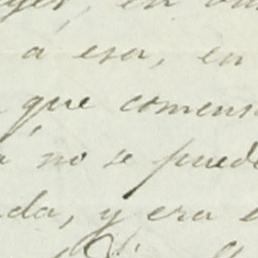 á esa, en
que comens
no se puede
da, y era